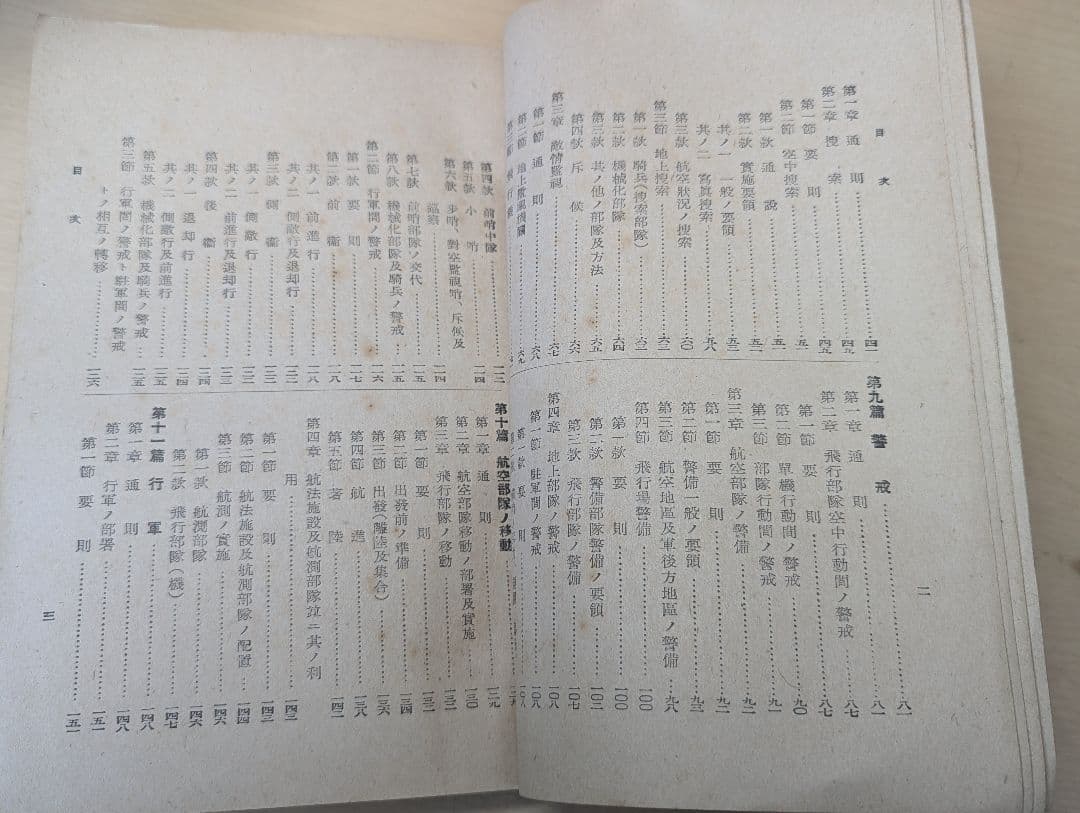 目次
第一章 通則 四一
第二章 捜索 四五
第一節 要則
第二節 空中捜索 五一
第一款 通說 五一
第二款 實施要領 五二
其ノ一 一般ノ要領
其ノ二 寫眞捜索 五八
第三款 航空狀況ノ捜索 六〇
第三節 地上捜索 六二
第一款 騎兵(捜索部隊) 六二
第二款 機械化部隊 六四
第三款 其ノ他ノ部隊及方法 六五
第四款 斥候 六六
第三章 敵情監視 六七
第一節 通則 六八
第二節 地上監視機關 六九
第九篇 警戒 八一
第一章 通則 八一
第二章 飛行部隊空中行動間ノ警戒 八七
第一節 要則 八七
第二節 單機行動間ノ警戒 九〇
第三節 部隊行動間ノ警戒 九一
第三章 航空部隊ノ警備 九二
第一節 要則 九二
第二節 警備一般ノ要領 九三
第三節 航空地區及軍後方地區ノ警備 九六
第四節 飛行場警備 一〇〇
第一款 要則 一〇〇
第二款 警備部隊警備ノ要領 一〇三
第三款 飛行部隊ノ警備 一〇七
第四章 地上部隊ノ警戒 一〇八
第一節 駐軍間ノ警戒 一〇八
第一款 要則 一〇八
二
第四款 前哨中隊 一一二
第五款 小哨 一一四
第六款 步哨、對空監視哨、斥候及
巡察 一一四
第七款 前哨部隊ノ交代 一一五
第八款 機械化部隊及騎兵ノ警戒 一一五
第二節 行軍間ノ警戒 一一六
第一款 要則 一一七
第二款 前衛 一一八
其ノ一 前進行 一一八
其ノ二 側敵行及退却行 一二二
第三款 側衛 一二三
其ノ一 側敵行 一二三
其ノ二 前進行及退却行 一二三
第四款 後衛 一二四
其ノ一 退却行 一二四
其ノ二 側敵行及前進行 一二五
第五款 機械化部隊及騎兵ノ警戒 一二五
第三節 行軍間ノ警戒ト駐軍間ノ警戒
トノ相互ノ轉移 一二六
目次
第十篇 航空部隊ノ移動
第一章 通則 一二九
第二章 航空部隊移動ノ部署及實施 一三〇
第三章 飛行部隊ノ移動 一三二
第一節 要則 一三二
第二節 出發前ノ準備 一三四
第三節 出發(離陸及集合) 一三六
第四節 航進 一三八
第五節 著陸 一四二
第四章 航法施設及航測部隊竝ニ其ノ利
用 一四三
第一節 要則 一四三
第二節 航法施設及航測部隊ノ配置 一四四
第三節 航測ノ實施 一四六
第一款 航測部隊 一四六
第二款 飛行部隊(機) 一四七
第十一篇 行軍
第一章 通則 一四八
第二章 行軍ノ部署 一五一
第一節 要則 一五一
三